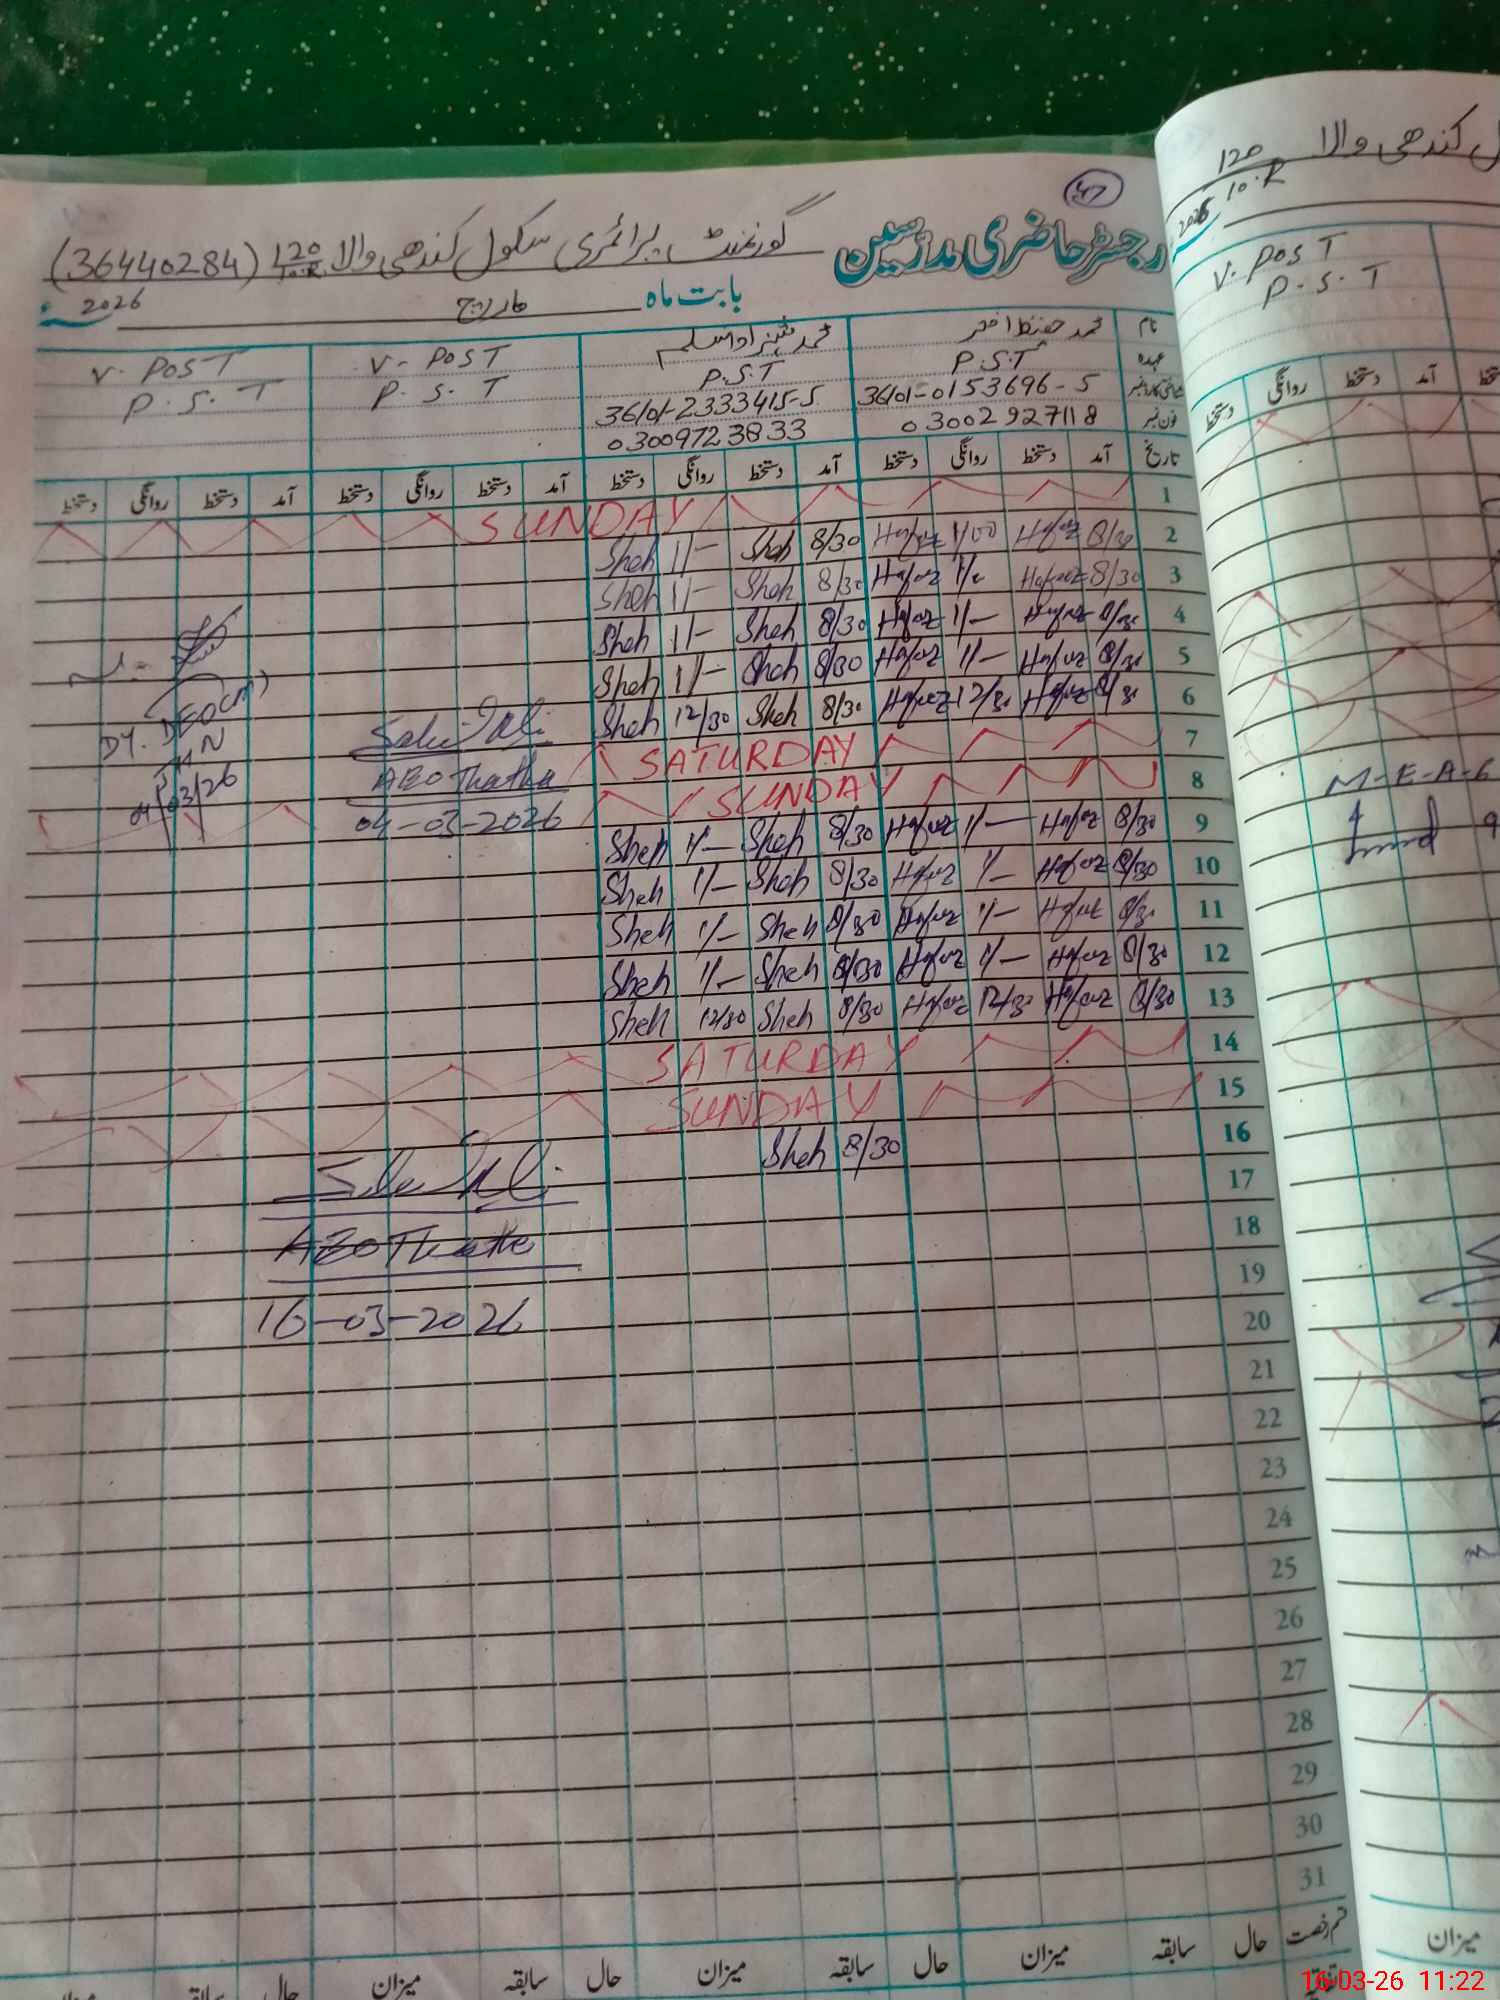 47
رجسٹر حاضری مدرسین گورنمنٹ پرائمری سکول کندھی والا 120/10.R (36440284)
بابت ماہ مارچ 2026
نام محمد حفیظ اختر محمد شہزاد اسلم V- POST V. POST
عہدہ P.S.T P.S.T P. S. T P. S. T
36101-0153696-5 36101-2333415-5
فون نمبر 03002927118 03009723833
تاریخ آمد دستخط روانگی دستخط آمد دستخط روانگی دستخط آمد دستخط روانگی دستخط آمد دستخط روانگی دستخط
1 SUNDAY
2 8/30 Hafeez 1/00 Hafeez 8/30 Sheh 1/- Sheh
3 8/30 Hafeez 1/- Hafeez 8/30 Sheh 1/- Sheh
4 8/30 Hafeez 1/- Hafeez 8/30 Sheh 1/- Sheh
5 8/30 Hafeez 1/- Hafeez 8/30 Sheh 1/- Sheh
6 8/30 Hafeez 12/30 Hafeez 8/30 Sheh 12/30 Sheh
7 SATURDAY
8 SUNDAY
9 8/30 Hafeez 1/- Hafeez 8/30 Sheh 1/- Sheh
10 8/30 Hafeez 1/- Hafeez 8/30 Sheh 1/- Sheh
11 8/30 Hafeez 1/- Hafeez 8/30 Sheh 1/- Sheh
12 8/30 Hafeez 1/- Hafeez 8/30 Sheh 1/- Sheh
13 8/30 Hafeez 12/30 Hafeez 8/30 Sheh 12/30 Sheh
14 SATURDAY
15 SUNDAY
16 8/30 Sheh
17
18
19
20
21
22
23
24
25
26
27
28
29
30
31
AEO Thatha
04-03-2026
DY. DEO(m)
04/03/26
AEO Thatha
16-03-2026
قسم رخصت حال سابقہ میزان حال سابقہ میزان حال سابقہ میزان حال
کندھی والا 120/10.R
2026
V. POST
P. S. T
آمد دستخط روانگی دستخط
M-E-A-6
میزان
16-03-26 11:22